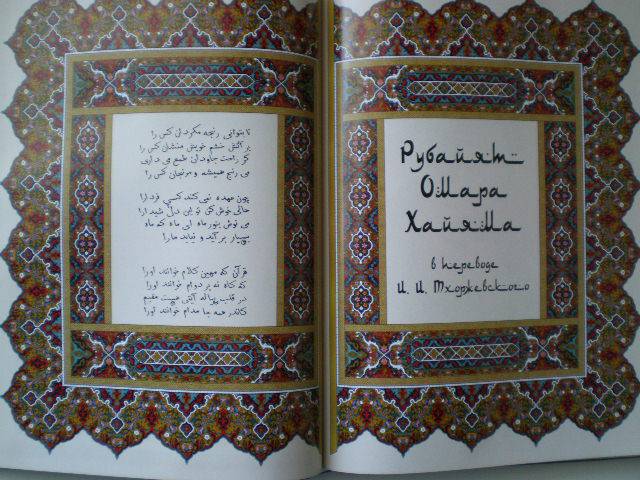 تا بتوانی رنجه مگردان کس را
بر آتش خشم خویش منشان کس را
گر راحت جاودان طمع می داری
می رنج همیشه و مرنجان کس را
چون عهده نمی کند کسی فردا را
حالی خوش کن تو این دل شیدا را
می نوش بنور ماه ای ماه که ماه
بسیار بر آید و نیابد ما را
قرآن که مهین کلام خوانند او را
گه گاه نه بر دوام خوانند او را
در قلب پیاله آیتی هست مقیم
کاندر همه جا مدام خوانند او را
Рубайят
Омара
Хайяма
в переводе
И. И. Тхоржевского